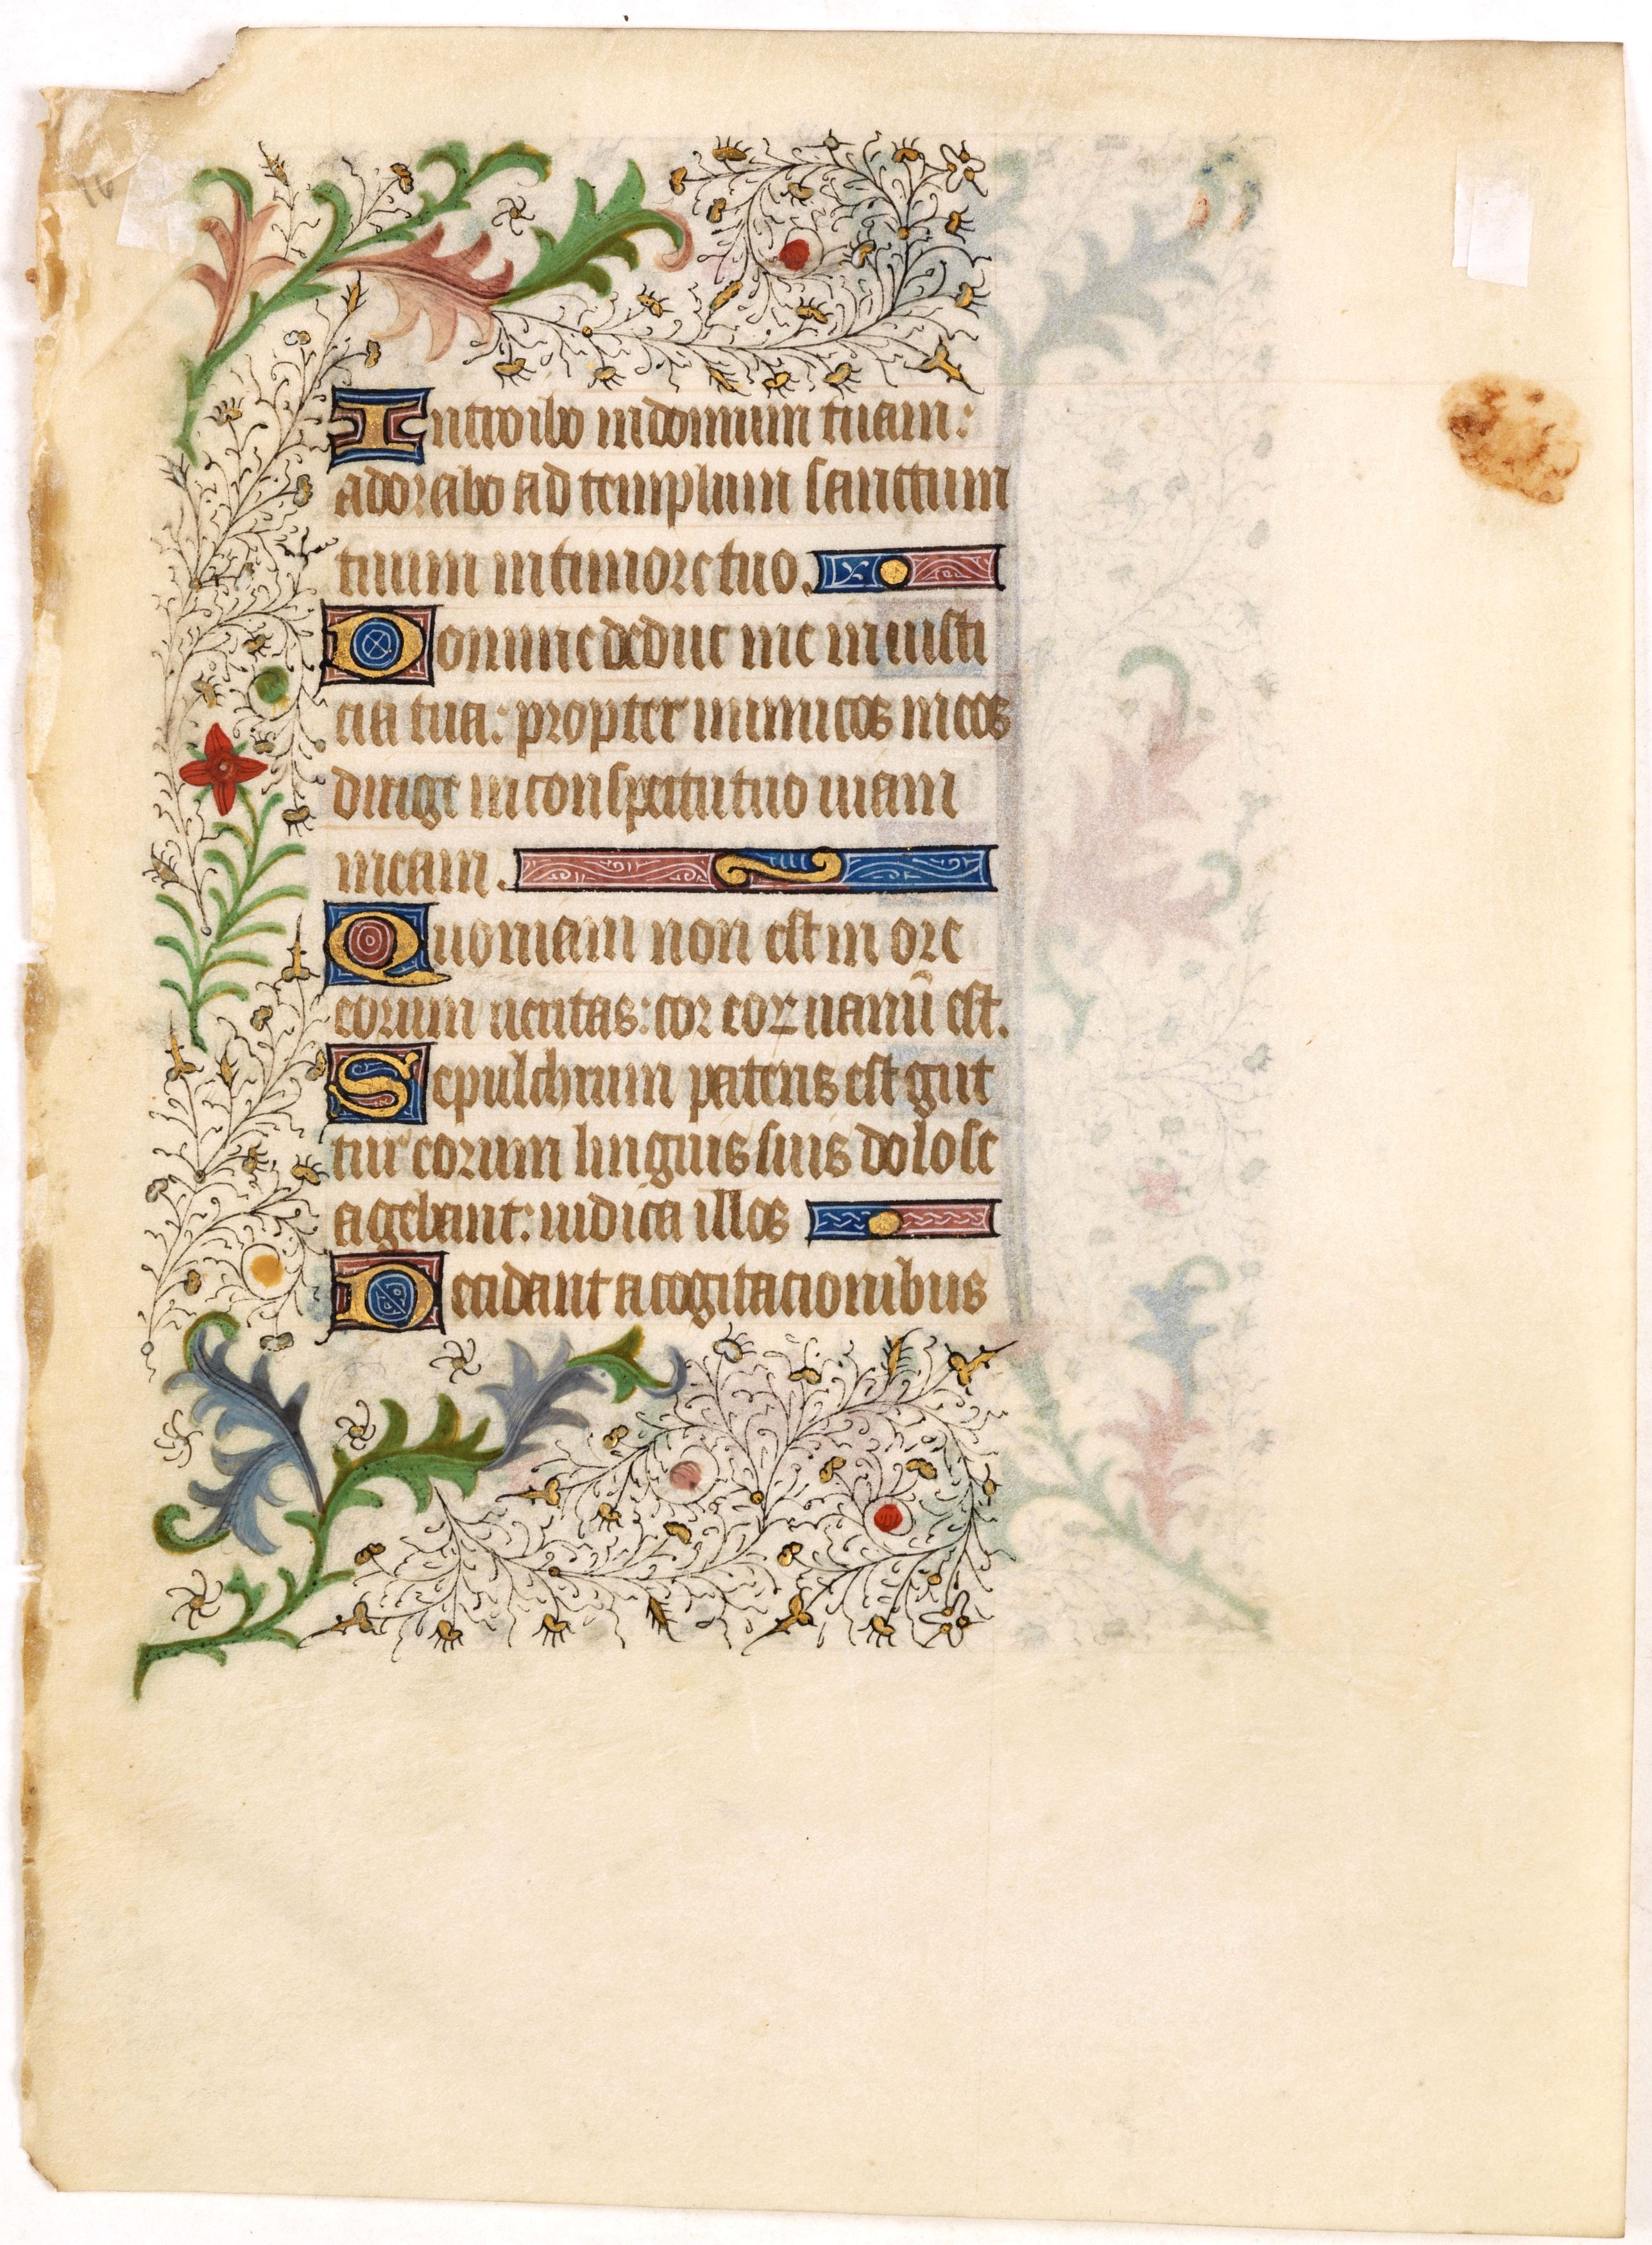 16
Introibo in domum tuam:
adorabo ad templum sanctum
tuum in timore tuo.
Domine deduc me in iusti
cia tua: propter inimicos meos
dirige in conspectu tuo uiam
meam.
Quoniam non est in ore
eorum ueritas: cor eoꝝ uanū est.
Sepulchrum patens est gut
tur eorum linguis suis dolose
agebant: iudica illos
Decidant a cogitacionibus